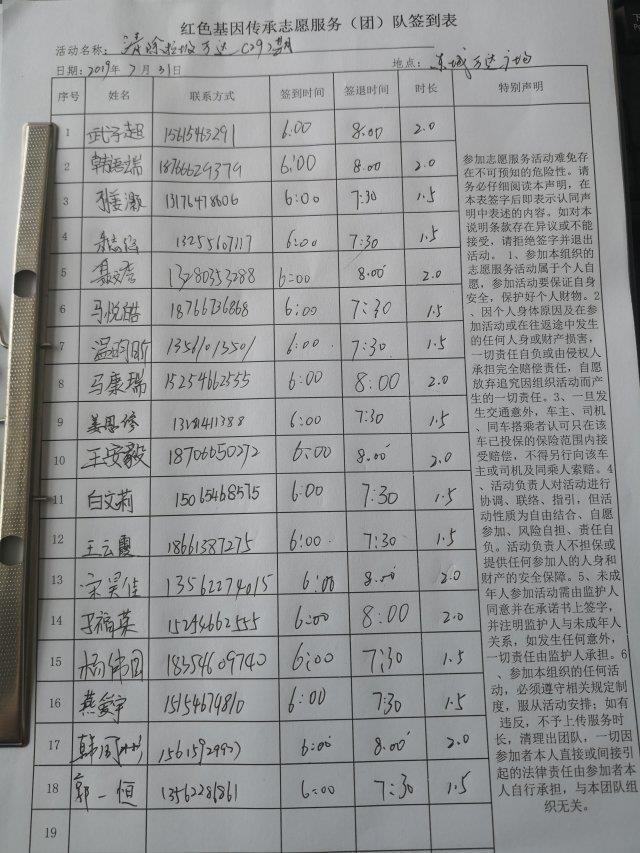 红色基因传承志愿服务（团）队签到表
活动名称：清除垃圾万达C292期
日期：2019年7月31日 地点：东城万达广场
序号 姓名 联系方式 签到时间 签退时间 时长 特别声明
1 武子超 15615463291 6:00 8:00 2.0
2 韩语瑞 18766629379 6:00 8.00 2.0
3 13176478606 6:00 7:30 1.5
4 13255607117 6:00 7:30 1.5
5 13280353288 6:00 8.00 2.0
6 马悦皓 18766736868 6:00 7:30 1.5
7 13561013501 6:00 7:30 1.5
8 马康瑞 15254662555 6:00 8:00 2.0
9 姜恩修 6:00 7:30 1.5
10 王安毅 18706650272 6:00 8.00 2.0
11 白文莉 15065468575 6:00 7:30 1.5
12 王云霞 18661387275 6:00 7:30 1.5
13 宋昊佳 13562274015 6:00 8.00 2.0
14 于福英 15254662555 6:00 8:00 2.0
15 杨伟国 18354609740 6:00 7:30 1.5
16 燕爱宇 15154674810 6:00 7:30 1.5
17 6:00 8.00 2.0
18 郭一恒 13562286861 6:00 7:30 1.5
19
参加志愿服务活动难免存
在不可预知的危险性。请
务必仔细阅读本声明，在
本表签字后即表示认同声
明中表述的内容。如对本
说明条款存在异议或不能
接受，请拒绝签字并退出
活动。 1、参加本组织的
志愿服务活动属于个人自
愿，参加活动要保证自身
安全，保护好个人财物。2
、因个人身体原因及在参
加活动或在往返途中发生
的任何人身或财产损害，
一切责任自负或由侵权人
承担完全赔偿责任，自愿
放弃追究因组织活动而产
生的一切责任。3、一旦发
生交通意外，车主、司机
、同车搭乘者认可只在该
车已投保的保险范围内接
受赔偿，不得另行向该车
主或司机及同乘人索赔。4
、活动负责人对活动进行
协调、联络、指引，但活
动性质为自由结合、自愿
参加、风险自担、责任自
负。活动负责人不担保或
提供任何参加人的人身和
财产的安全保障。5、未成
年人参加活动需由监护人
同意并在承诺书上签字，
并注明监护人与未成年人
关系，如发生任何意外，
一切责任由监护人承担。6
、参加本组织的任何活
动，必须遵守相关规定制
度，服从活动安排；如有
违反，不予上传服务时
长，清理出团队，一切因
参加者本人直接或间接引
起的法律责任由参加者本
人自行承担，与本团队组
织无关。